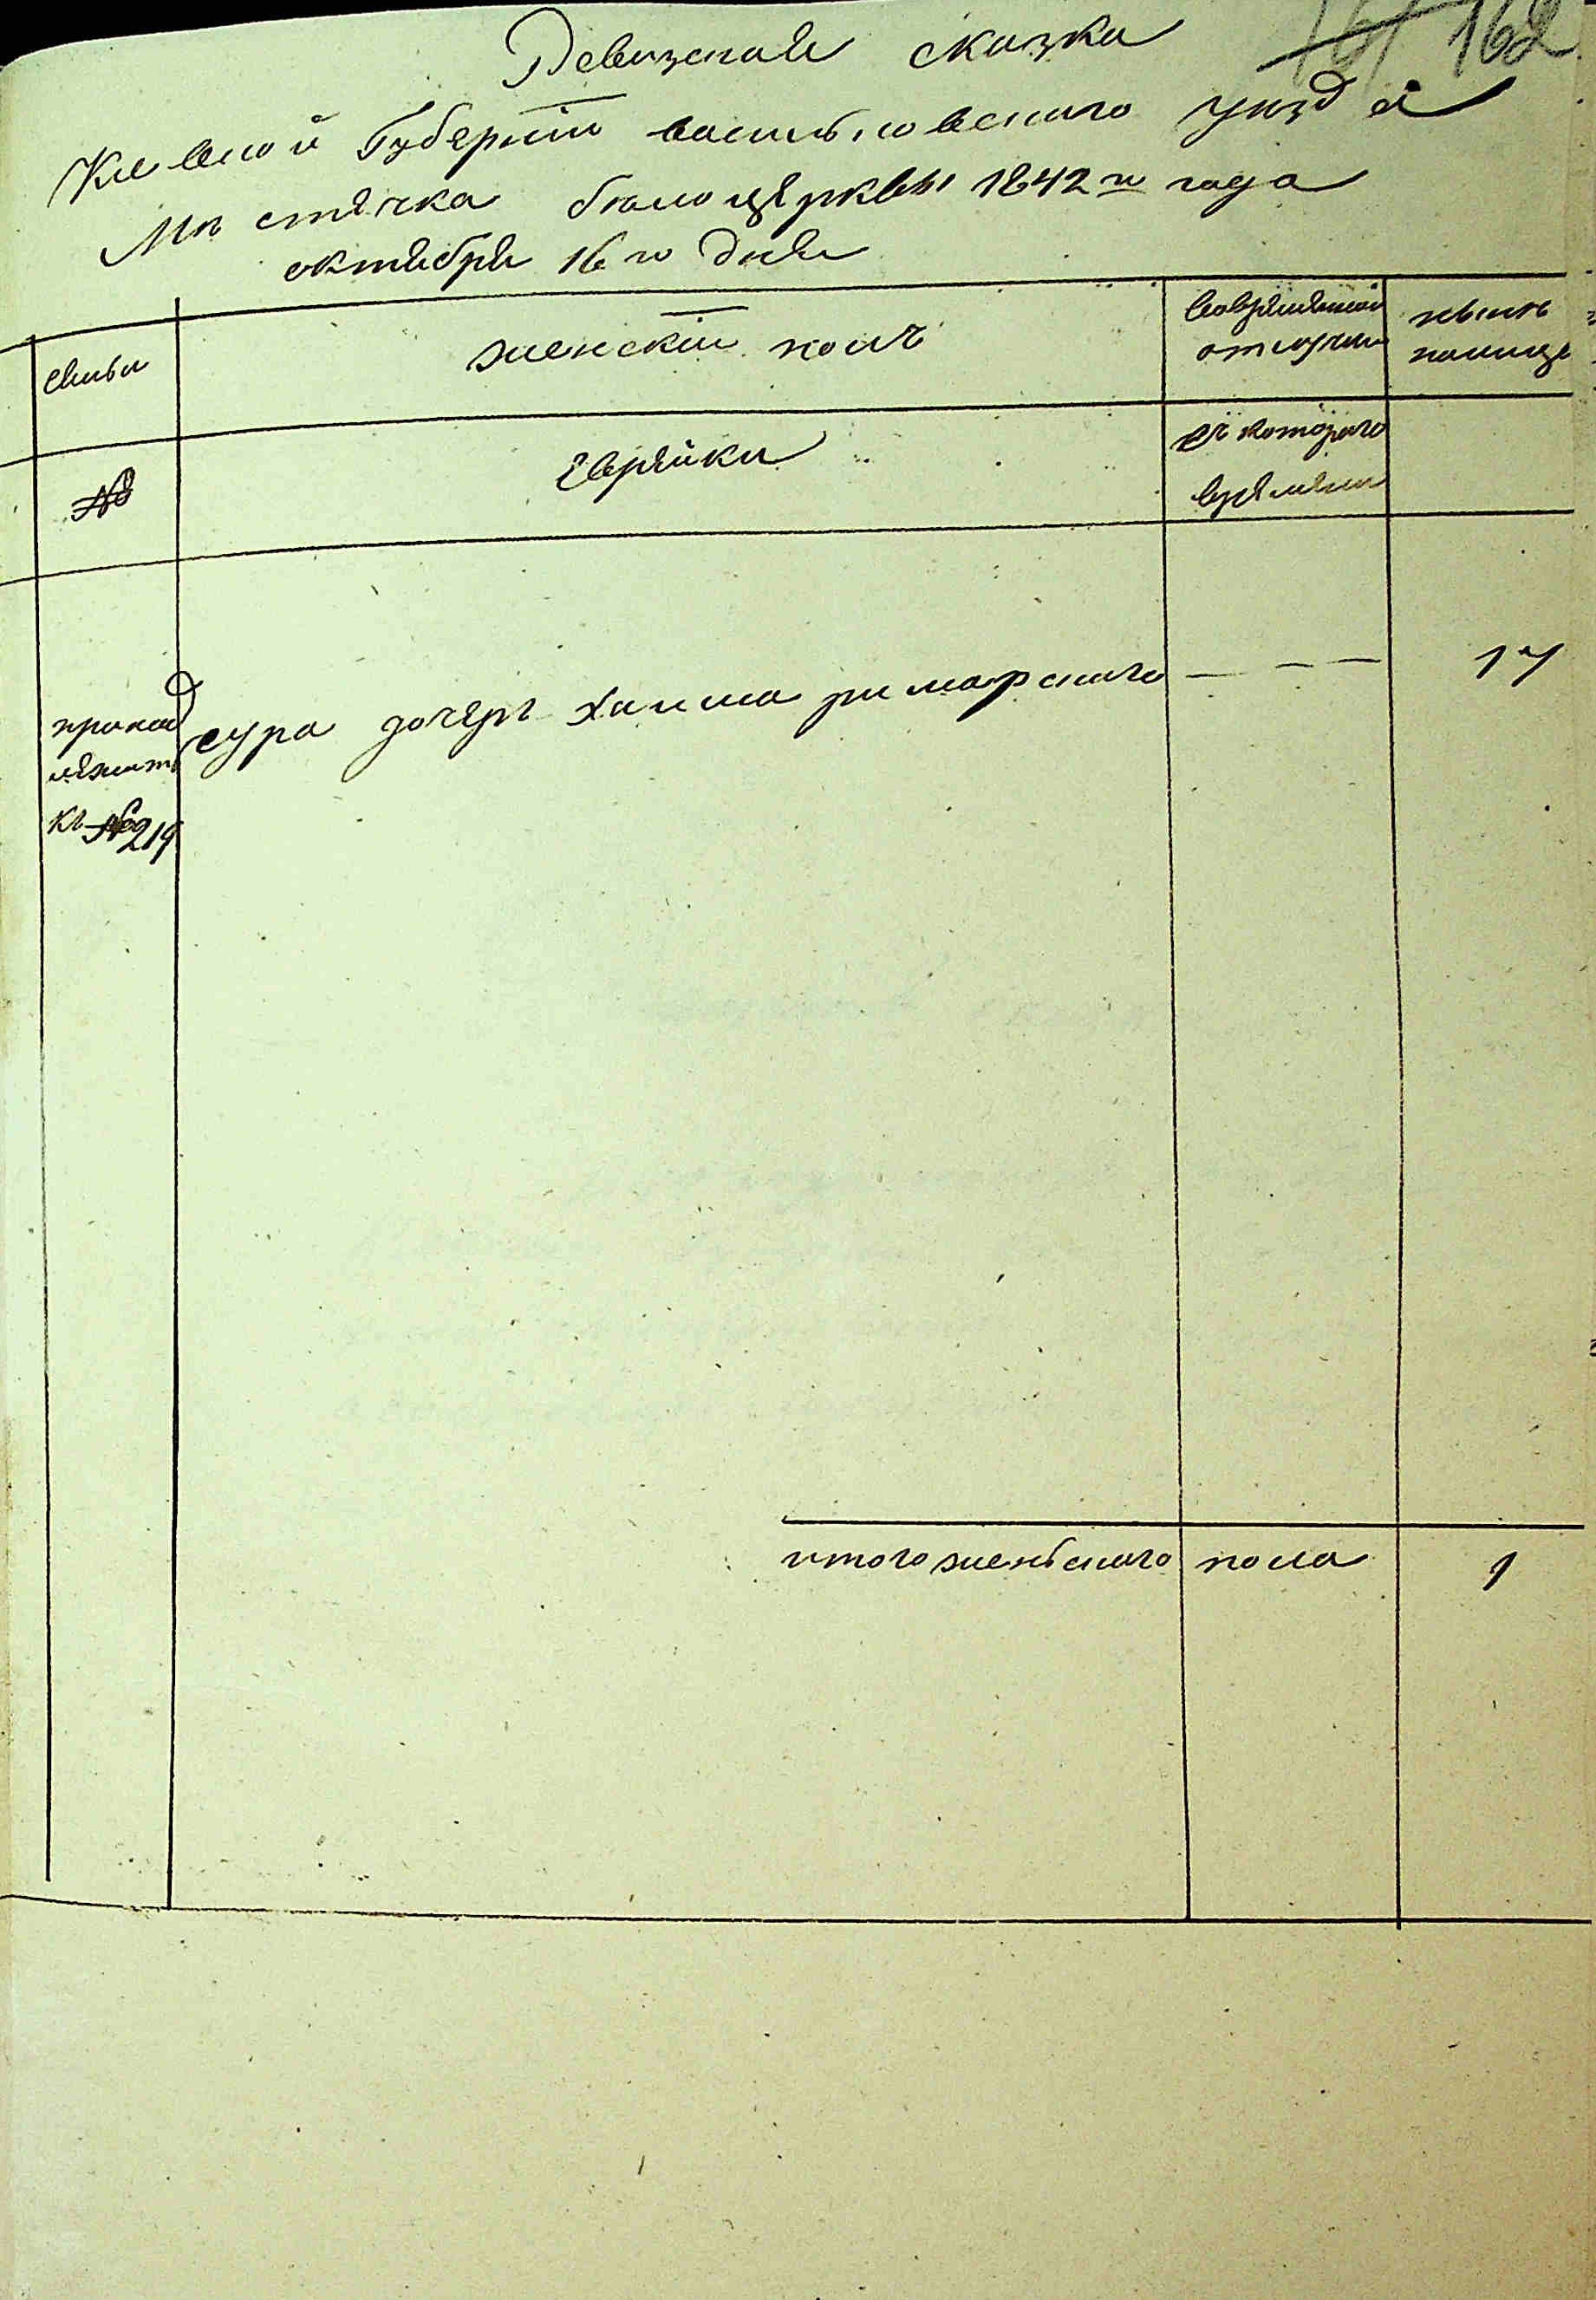 161 162
Ревизская сказка
Киевской Губернии васильковскаго уезда
Местечка белоцерквы 1842 го года
октября 16 го дня
семьи
женский полъ
вовременной отлучки
ныне налицо
№
Еврейки
съ котораго времени
принад
лежитъ
къ № 219
сура дочерь хаима римарскаго — — — 17
итого женьскаго пола 1